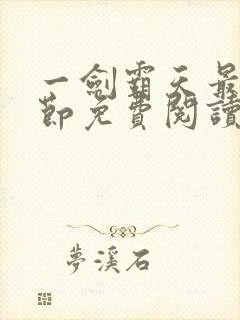 一劍霸天最
節免費閱讀
夢溪石